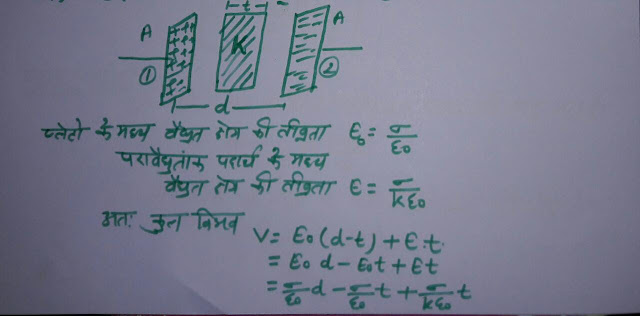 t
A
K
A
①
②
d
प्लेटो के मध्य वैधुत क्षेत्र की तीव्रता E₀ = σ/ε₀
परावैधुतांक पदार्थ के मध्य
वैधुत क्षेत्र की तीव्रता E = σ/kε₀
अतः कुल विभव
V = E₀(d-t) + E.t.
= E₀ d - E₀t + Et
= σ/ε₀ d - σ/ε₀ t + σ/kε₀ t